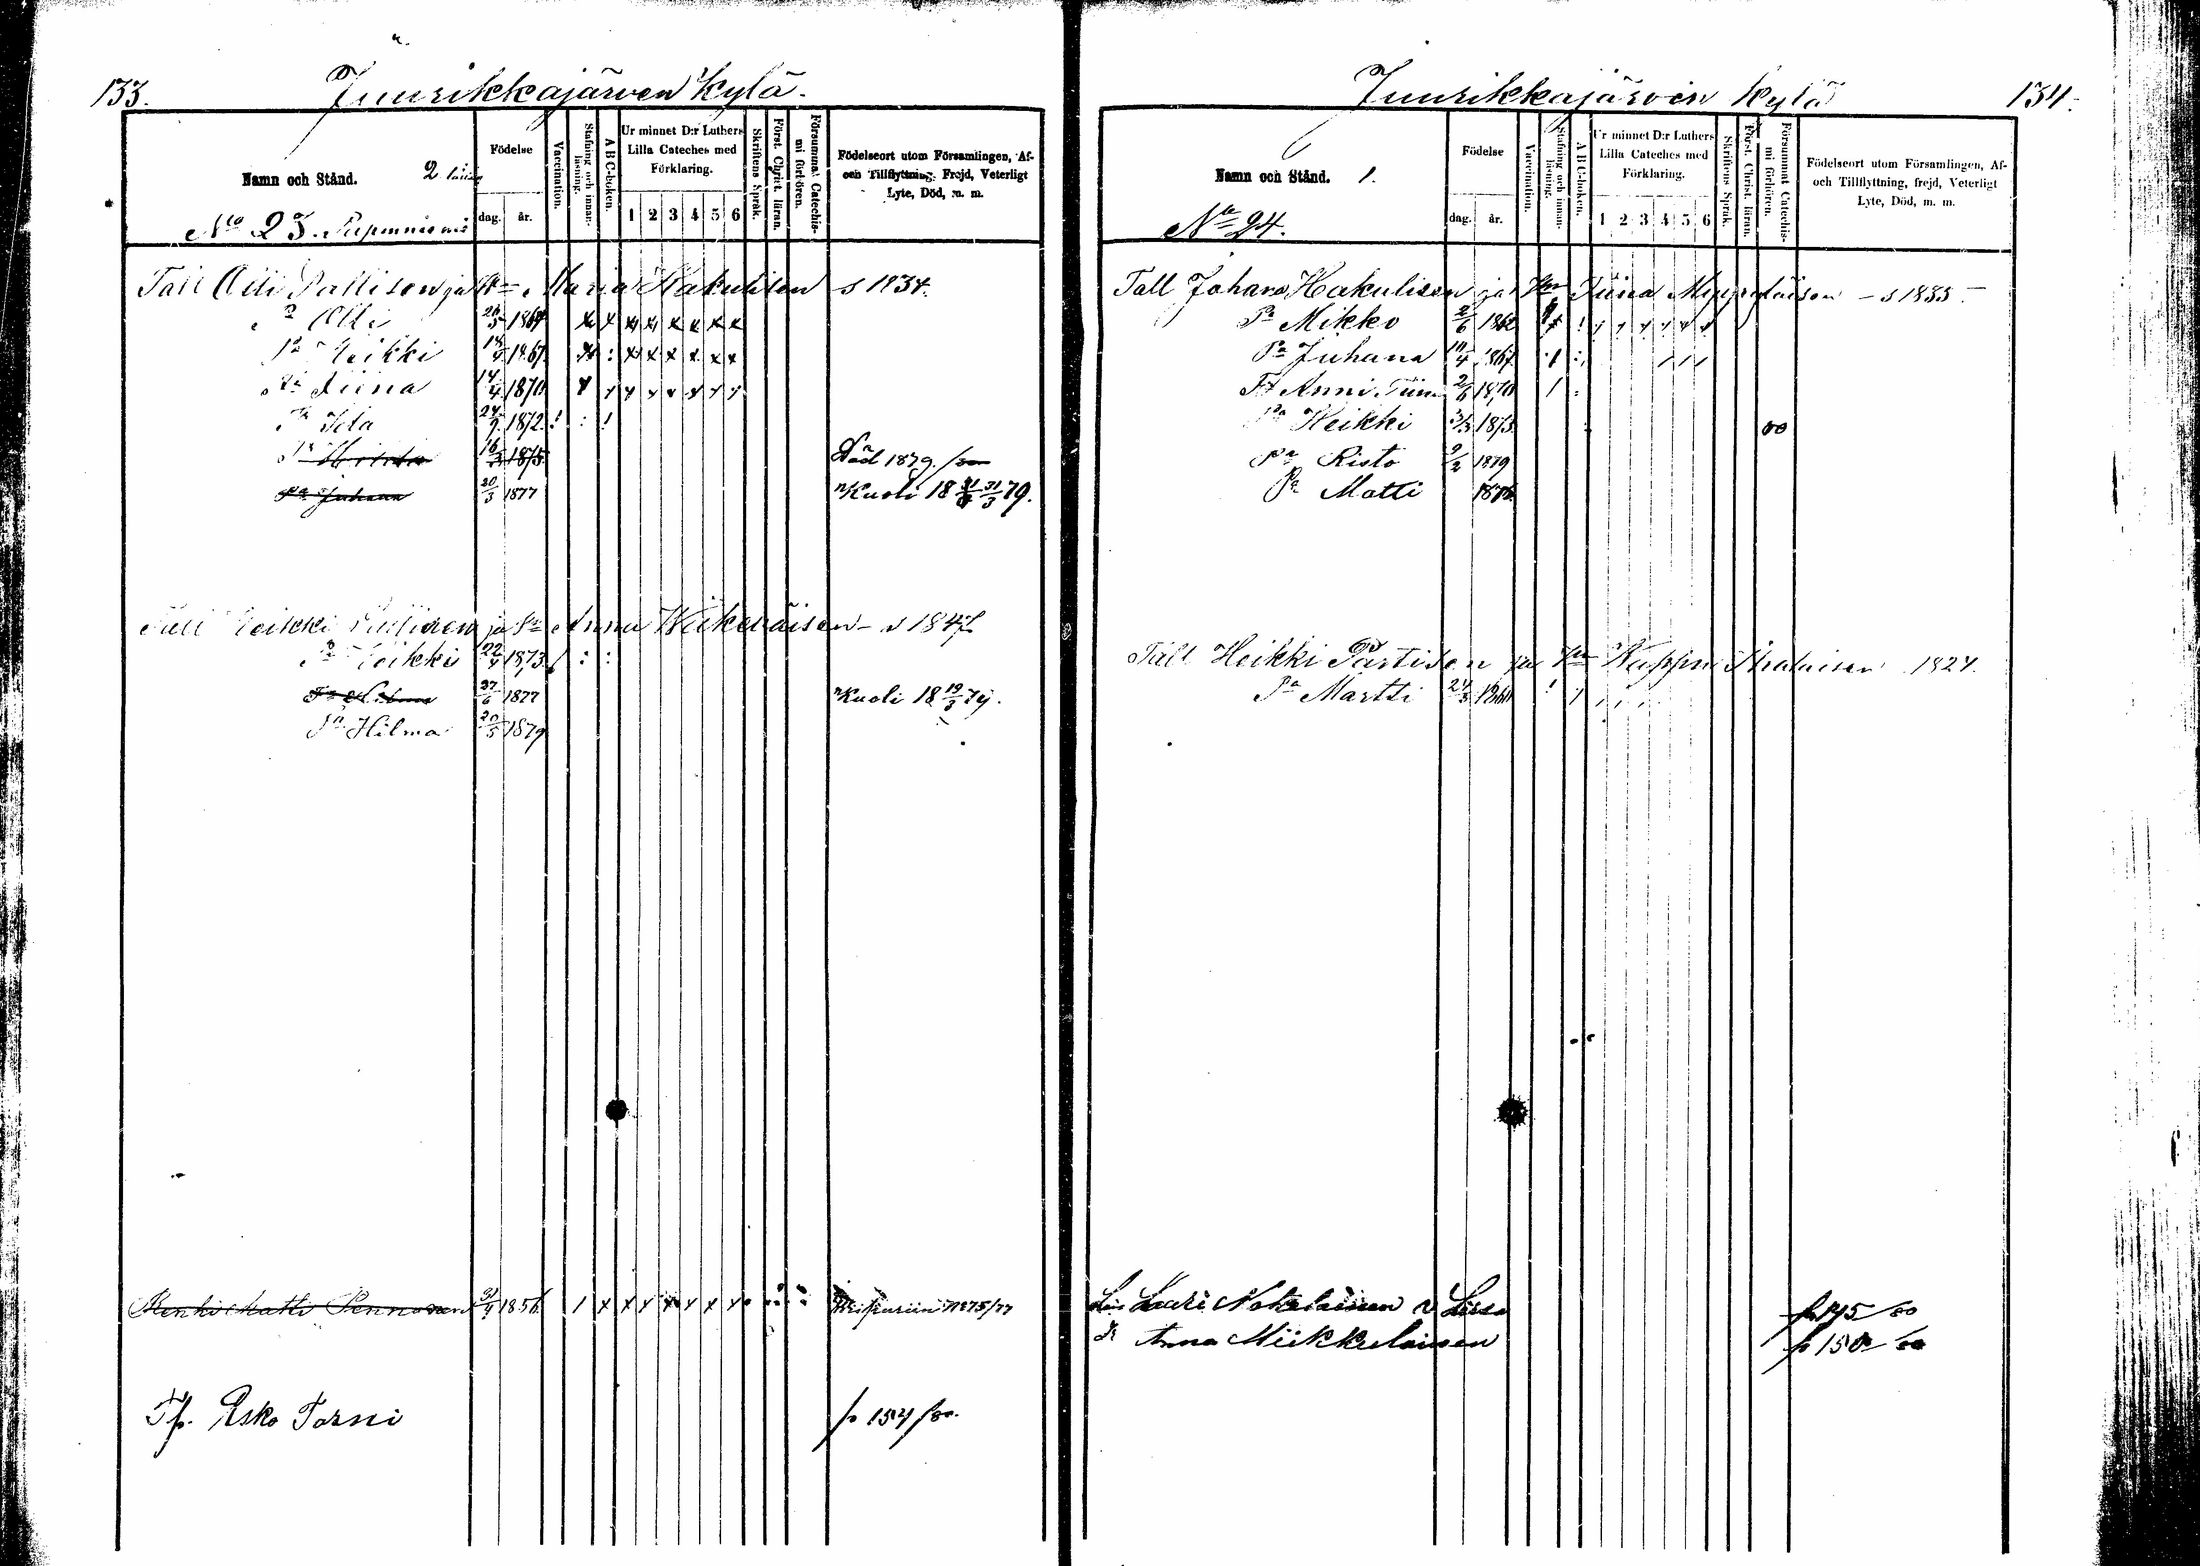 133.
Juurikkajärven Kylä.
Namn och Stånd. 2
Födelse
dag. år.
Vaccination.
Stafning och innanläsning.
A B C-boken.
Ur minnet D:r Luthers Lilla Cateches med Förklaring.
1 2 3 4 5 6
Skriftens Språk.
Först. Christ. läran.
Försummat Catechismi förhören.
Födelseort utom Församlingen, Af- och Tillflyttning, Frejd, Veterligt Lyte, Död, m. m.
No 23.
Tall Olli Pallisen ja Maria Hakulisen s 1834.
Pa Olli 26/5 1864
Pa Heikki 18/4 1867
Tr Tiina 14/4 1870
Ida 24/9 1872
16/3 1875 Död 1879.
Pa Juhana 20/3 1877 Kuoli 18 31/3 79.
Tall Heikki Pallisen ja Anna s 1847
Pa Heikki 22/4 1873
27/6 1877 Kuoli 18 19/3 79.
Hilma 20/5 1879
Renki Matti Pennonen 1856 Wiipuriin No 75/77
Tp. Esko Torni p 154/80.
134.
Juurikkajärven Kylä
Namn och Stånd. 1.
Födelse
dag. år.
Vaccination.
Stafning och innanläsning.
A B C-boken.
Ur minnet D:r Luthers Lilla Cateches med Förklaring.
1 2 3 4 5 6
Skriftens Språk.
Först. Christ. läran.
Försummat Catechismi förhören.
Födelseort utom Församlingen, Af- och Tillflyttning, frejd, Veterligt Lyte, Död, m. m.
No 24.
Tall Johana Hakulisen ja Tiina - s 1835
Pa Mikko 2/6 1862
Pa Juhana 10/4 1867
Tr Anni Tiina 2/6 1870
Pa Heikki 3/3 1873 80
Pa Risto 9/2 1879
Pa Matti 1876
Tall Heikki Partisen ja 1824.
Pa Martti 24/3 1860
Lauri Nokelainen Liisa p 145/80
Anna Miikkulainen p 150/80